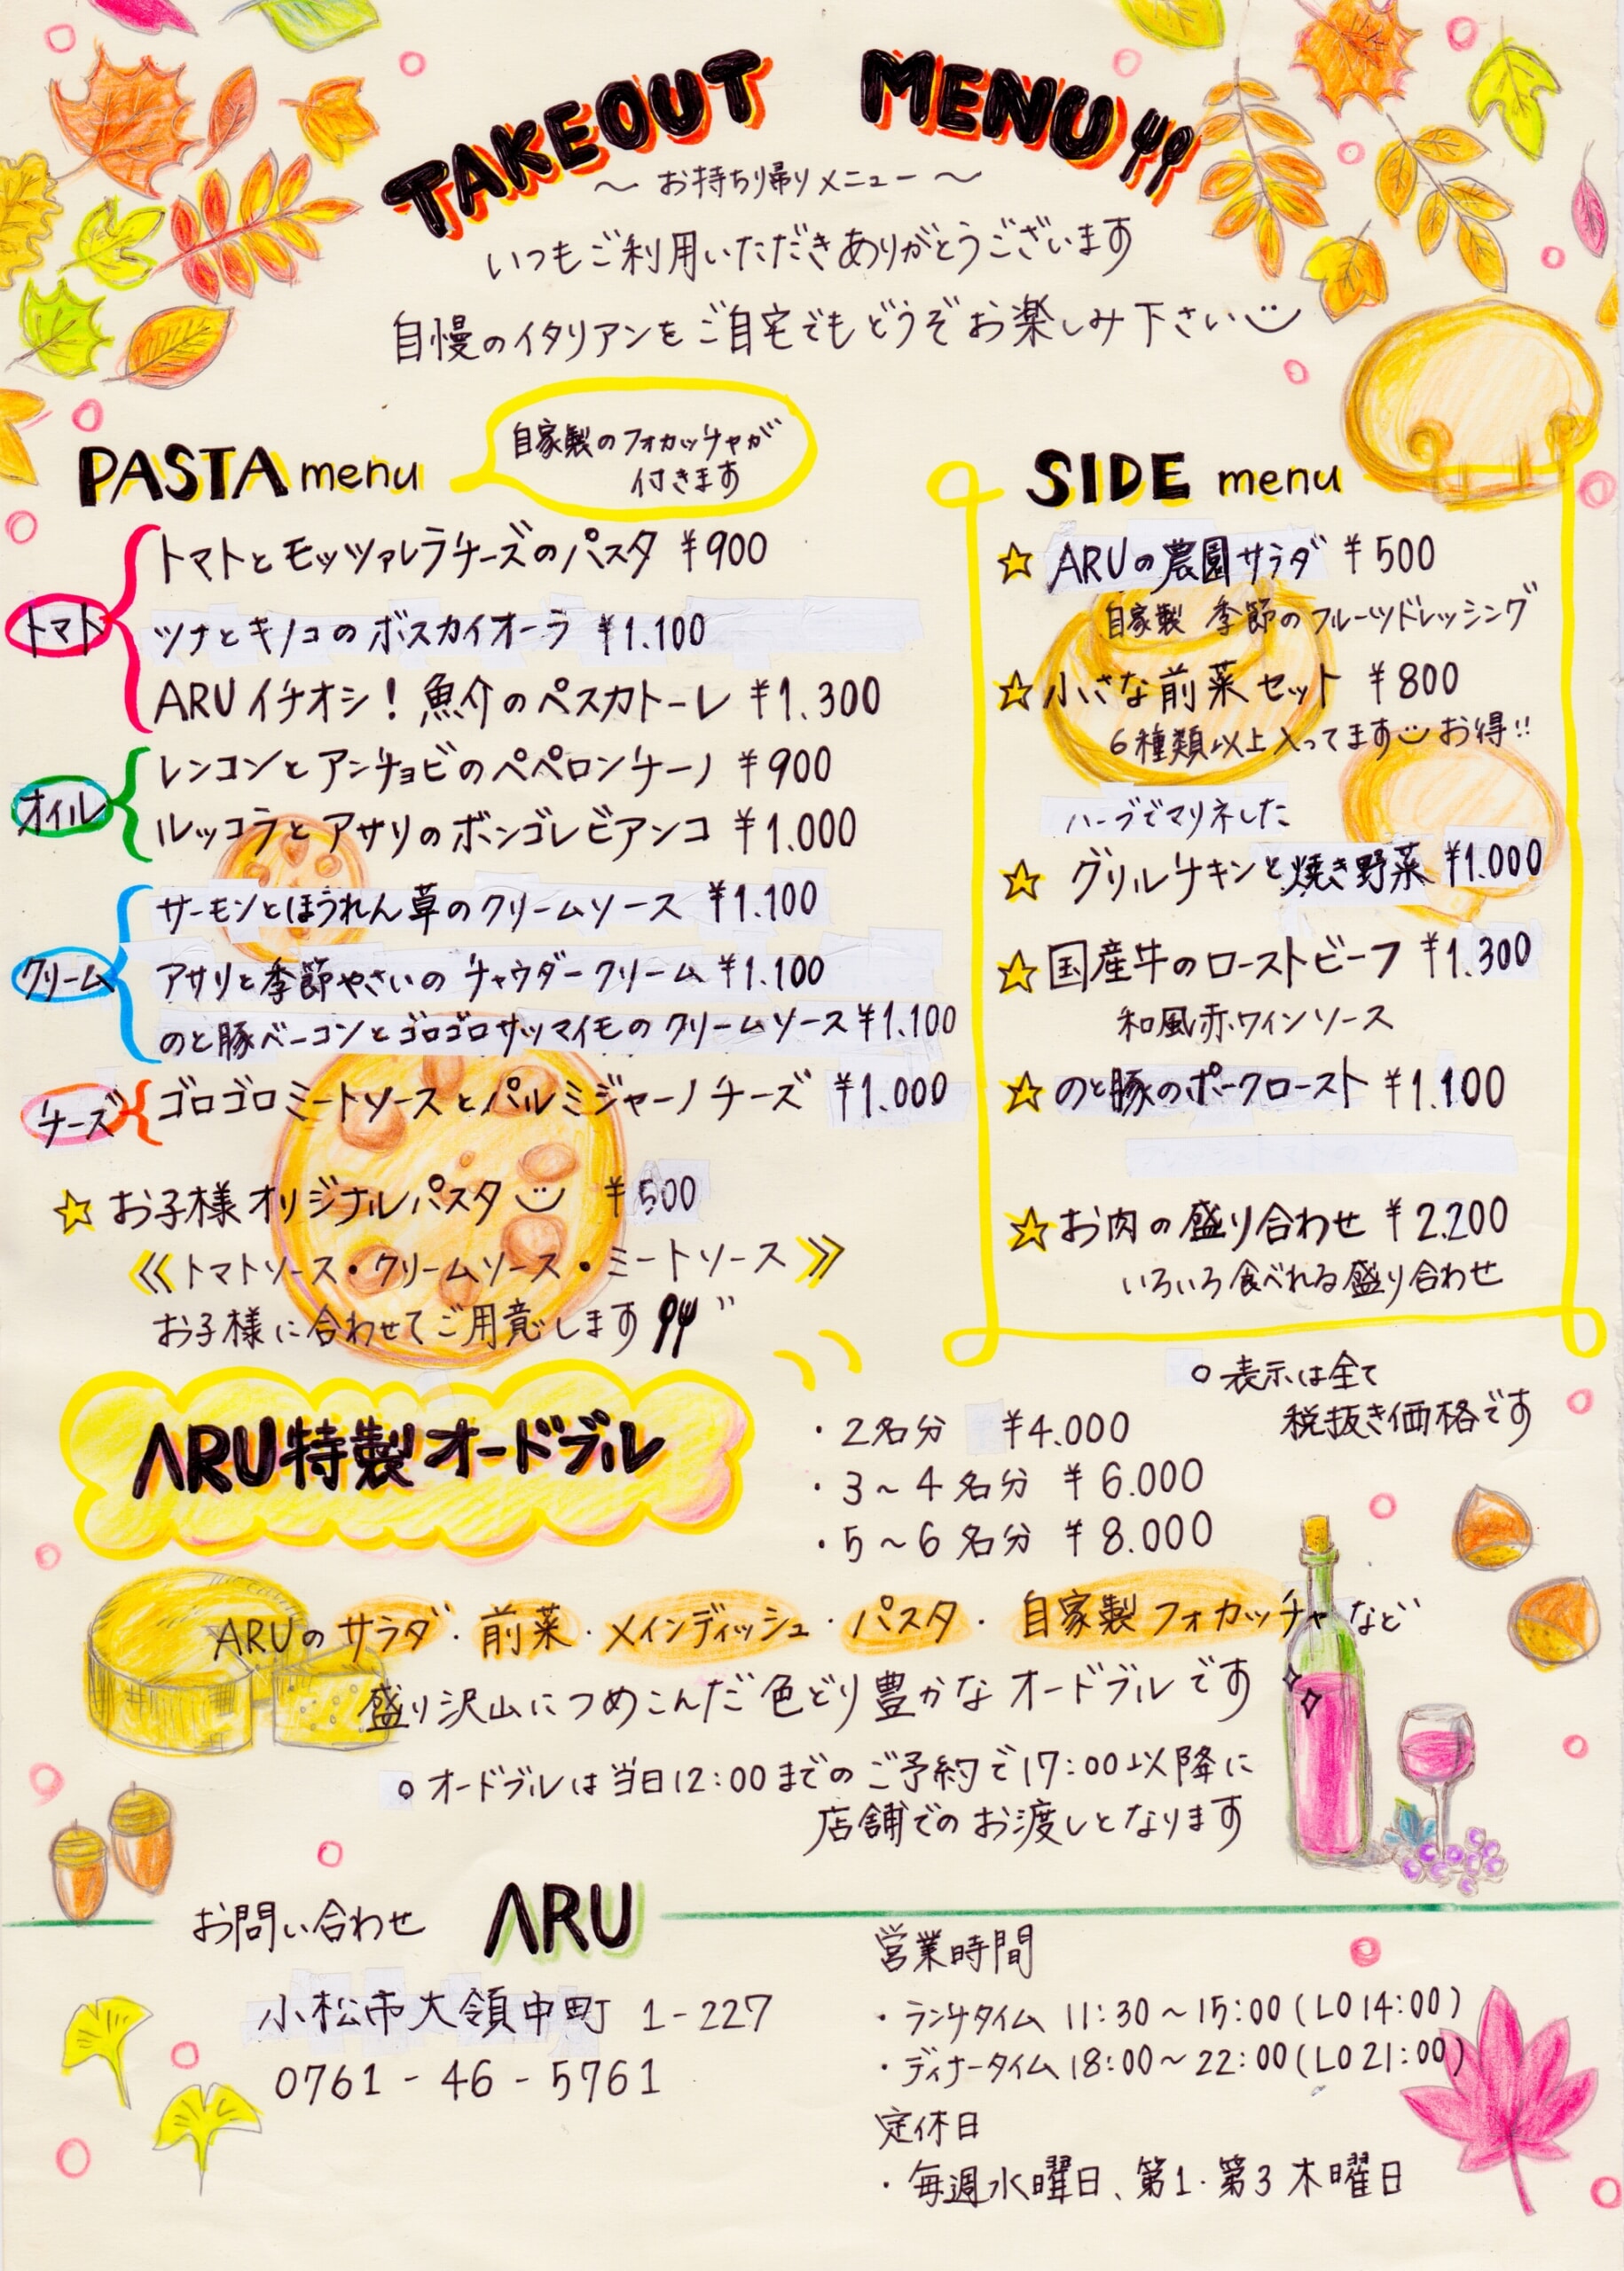 TAKEOUT MENU
～ お持ち帰りメニュー ～
いつもご利用いただきありがとうございます
自慢のイタリアンをご自宅でもどうぞお楽しみ下さい
PASTA menu
自家製のフォカッチャが
付きます
トマト
トマトとモッツァレラチーズのパスタ ¥900
ツナとキノコのボスカイオーラ ¥1.100
ARUイチオシ！魚介のペスカトーレ ¥1.300
オイル
レンコンとアンチョビのペペロンチーノ ¥900
ルッコラとアサリのボンゴレビアンコ ¥1.000
クリーム
サーモンとほうれん草のクリームソース ¥1.100
アサリと季節やさいのチャウダークリーム ¥1.100
のと豚ベーコンとゴロゴロサツマイモのクリームソース ¥1.100
チーズ
ゴロゴロミートソースとパルミジャーノチーズ ¥1.000
☆ お子様オリジナルパスタ ¥500
《トマトソース・クリームソース・ミートソース》
お子様に合わせてご用意します
SIDE menu
☆ ARUの農園サラダ ¥500
自家製 季節のフルーツドレッシング
☆ 小さな前菜セット ¥800
6種類以上入ってます お得!!
ハーブでマリネした
☆ グリルチキンと焼き野菜 ¥1.000
☆ 国産牛のローストビーフ ¥1.300
和風赤ワインソース
☆ のと豚のポークロースト ¥1.100
☆ お肉の盛り合わせ ¥2.200
いろいろ食べれる盛り合わせ
○ 表示は全て
税抜き価格です
ARU特製オードブル
・2名分 ¥4.000
・3～4名分 ¥6.000
・5～6名分 ¥8.000
ARUのサラダ・前菜・メインディッシュ・パスタ・自家製フォカッチャなど
盛り沢山につめこんだ色どり豊かなオードブルです
○ オードブルは当日12:00までのご予約で17:00以降に
店舗でのお渡しとなります
お問い合わせ ARU
小松市大領中町 1-227
0761-46-5761
営業時間
・ランチタイム 11:30～15:00(LO14:00)
・ディナータイム 18:00～22:00(LO21:00)
定休日
・毎週水曜日、第1・第3木曜日